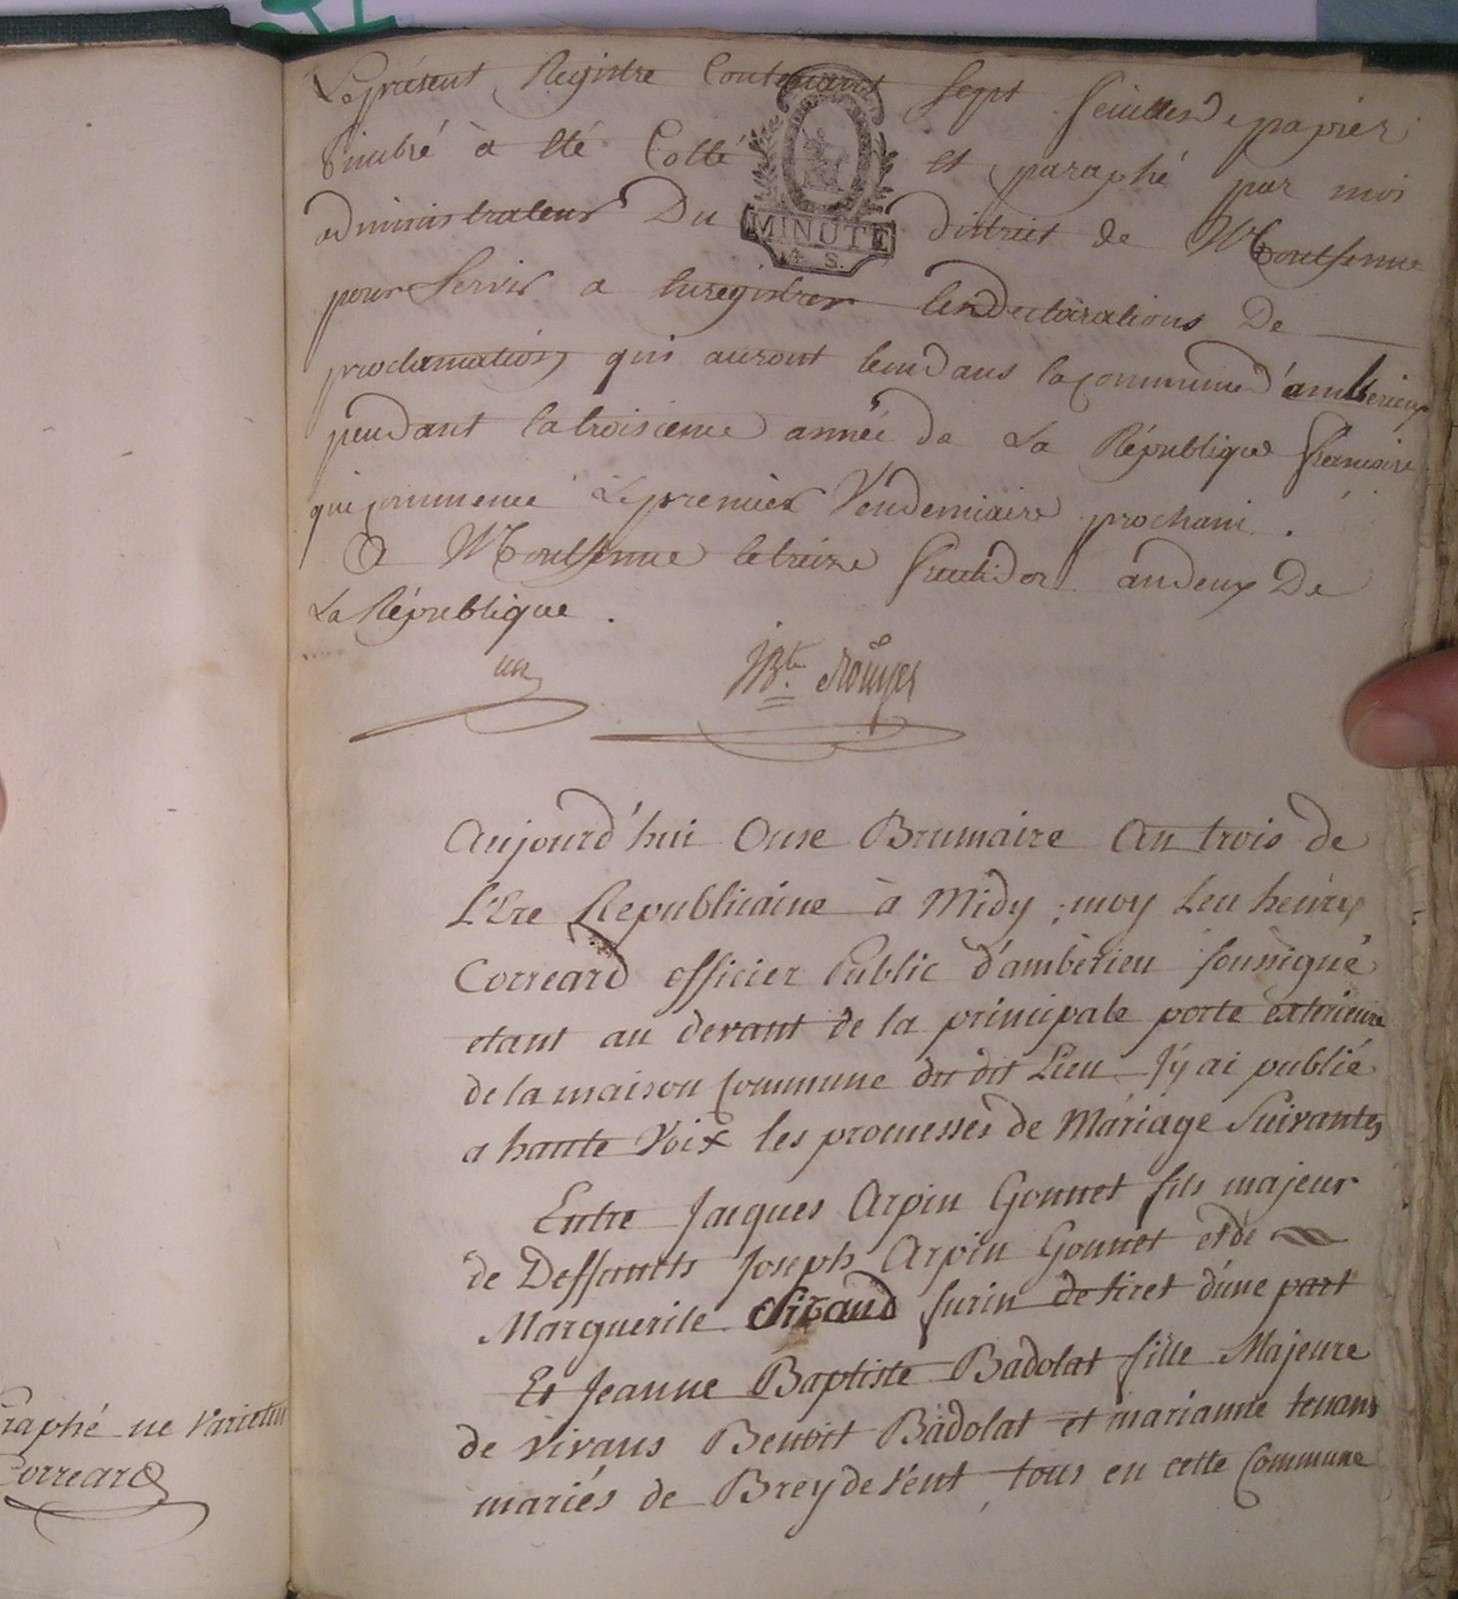 Le présent Registre Contenant Sept feuilles de papier
timbré à été Cotté et paraphé par moi
administrateur Du District de Montferme
pour Servir a Enregistrer les Declarations De
proclamation, qui auront lieu dans la commune d'amberieux
pendant la troisieme année de La République francaise
qui commence Le premier Vendemiaire prochain.
A Montferme le treize fructidor an deux De
La République.
un
JBte Roüyer
MINUTE
4 S.
Aujourd'hui Onse Brumaire An trois de
L'Ere Republicaine à Midy, moy Leu henry
Correard officier Public d'ambèrieu soussigné
etant au devant de la principale porte exterieure
de la maison Commune du dit Lieu J'y ai publié
a haute Voix les promesses de Mariage Suivantes
Entre Jacques Arpin Gonnet fils majeur
de Deffunts Joseph Arpin Gonnet et de
Marguerite furin de tiret d'une part
Et Jeanne Baptiste Badolat fille Majeure
de vivans Benoit Badolat et marianne tenans
mariés de Brey de Vent, tous en cette Commune
raphé ne Varietur
Correard